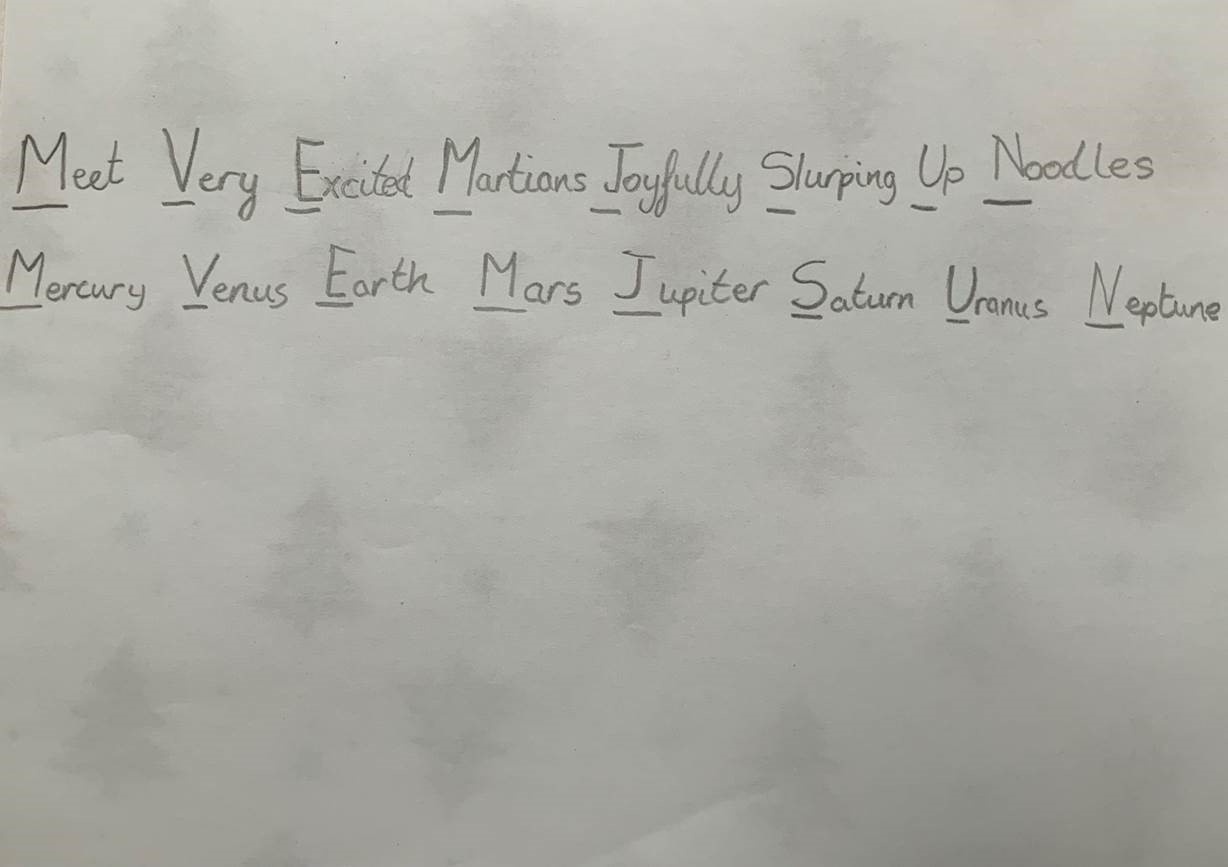 Meet Very Excited Martians Joyfully Slurping Up Noodles
Mercury Venus Earth Mars Jupiter Saturn Uranus Neptune